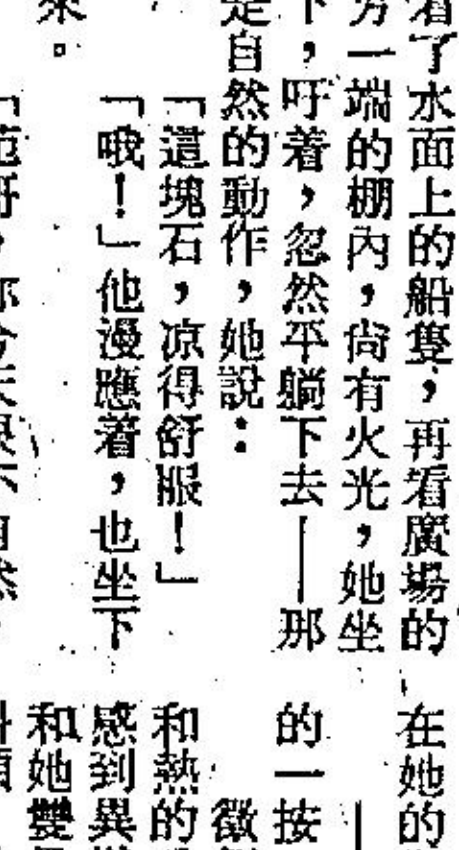 看了水面上的船隻，再看廣場的
旁一端的棚內，尙有火光，她坐
下，吁着，忽然平躺下去——那
是自然的動作，她說：
「這塊石，凉得舒服！」
「哦！」他漫應着，也坐下
來。
在她的
的一按
徵
和熱的
感到異
和她雙